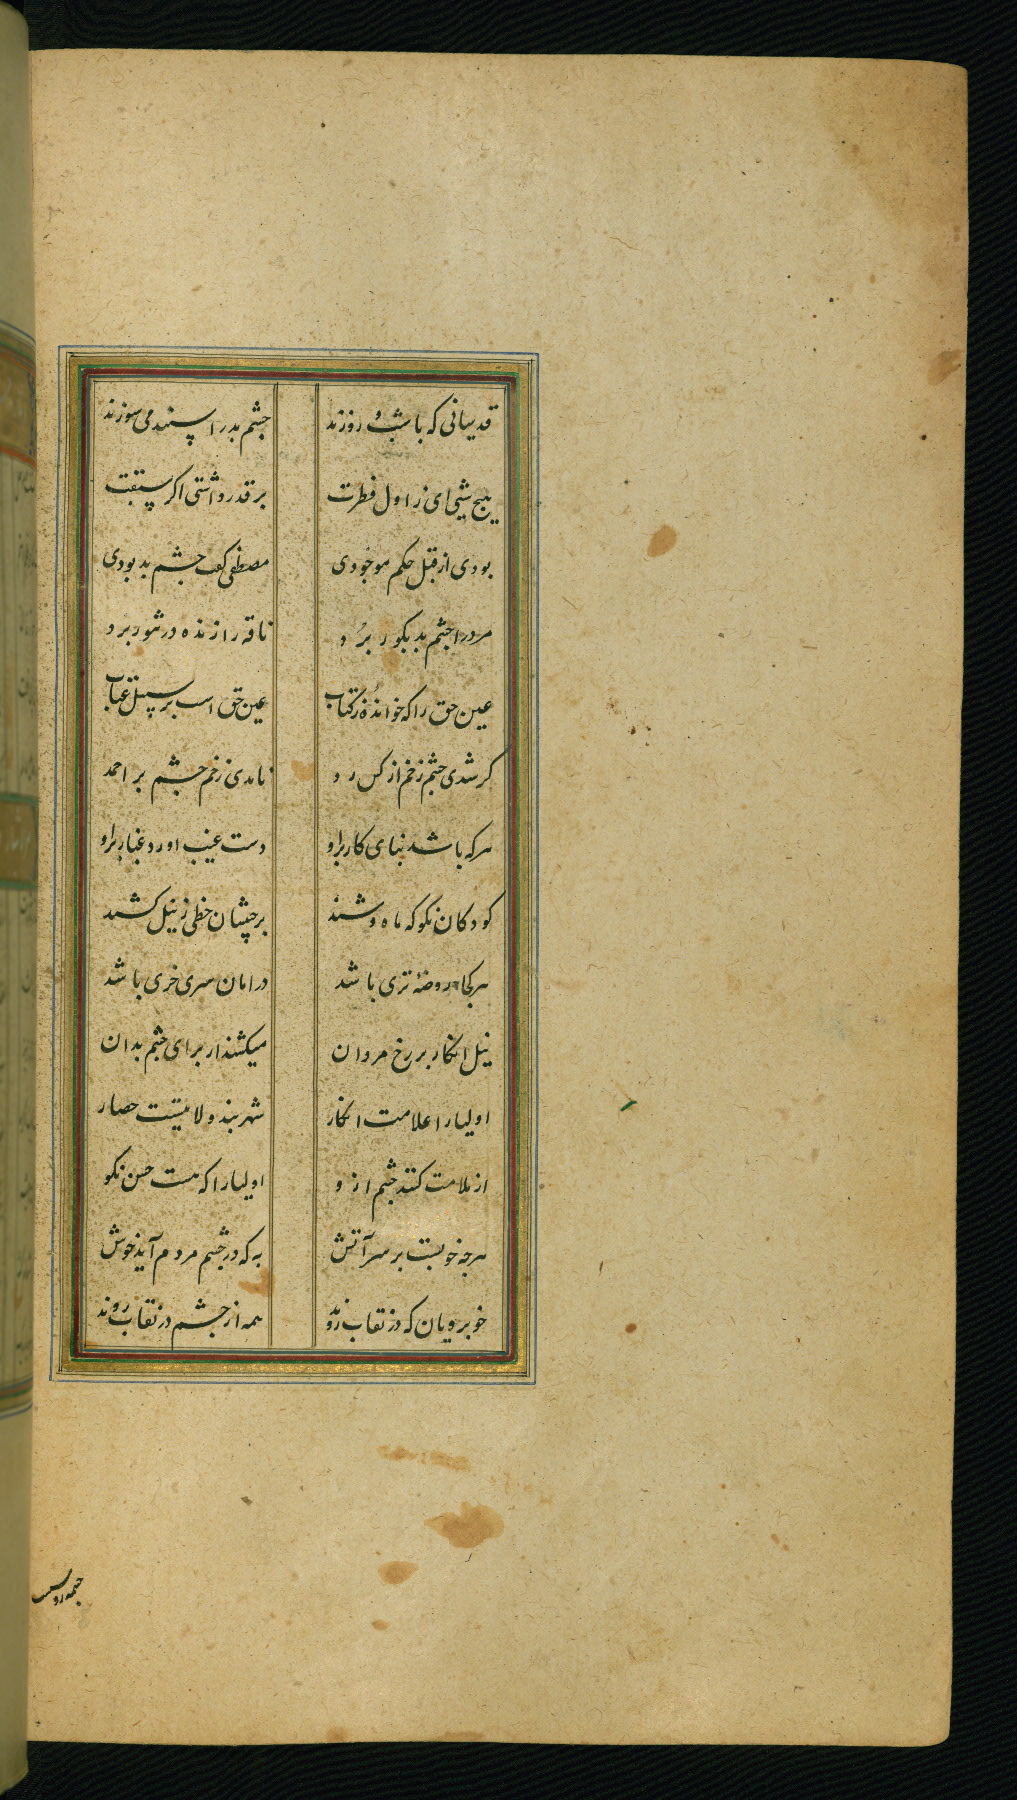 قدسیانی که با شب و روزند چشم بد را سپند می سوزند
هیچ شیی ای ز اول فطرت بر قدر داشتی اکر سبقت
بودی از قبل حکم موجودی مصطفی کفت چشم بد بودی
مرد را چشم بد بکور برد ناقه را زنده در تنور برد
عین حق را که خوانده ز کتاب عین حق است بر سبیل عتاب
کر شدی چشم زخم از کس رد نامدی زخم چشم بر احمد
هر که باشد بنای کار برو دست غیب اورد غبار برو
کودکان نکو که ماه وشند بر جبینشان خطی ز نیل کشند
هر کجا روضهٔ تری باشد در امان سری خری باشد
نیل انکار بر رخ مردان میکشند از برای چشم بدان
اولیا را علامت انکار شهر بند ولایتست حصار
از ملامت کنند چشم از و اولیا را که هست حسن نکو
هرچه خوبست بر سر آتش به که در چشم مردم آید خوش
خوبرویان که در نقاب روند همه از چشم در نقاب روند